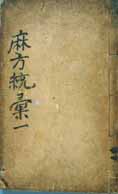 麻方統彙一